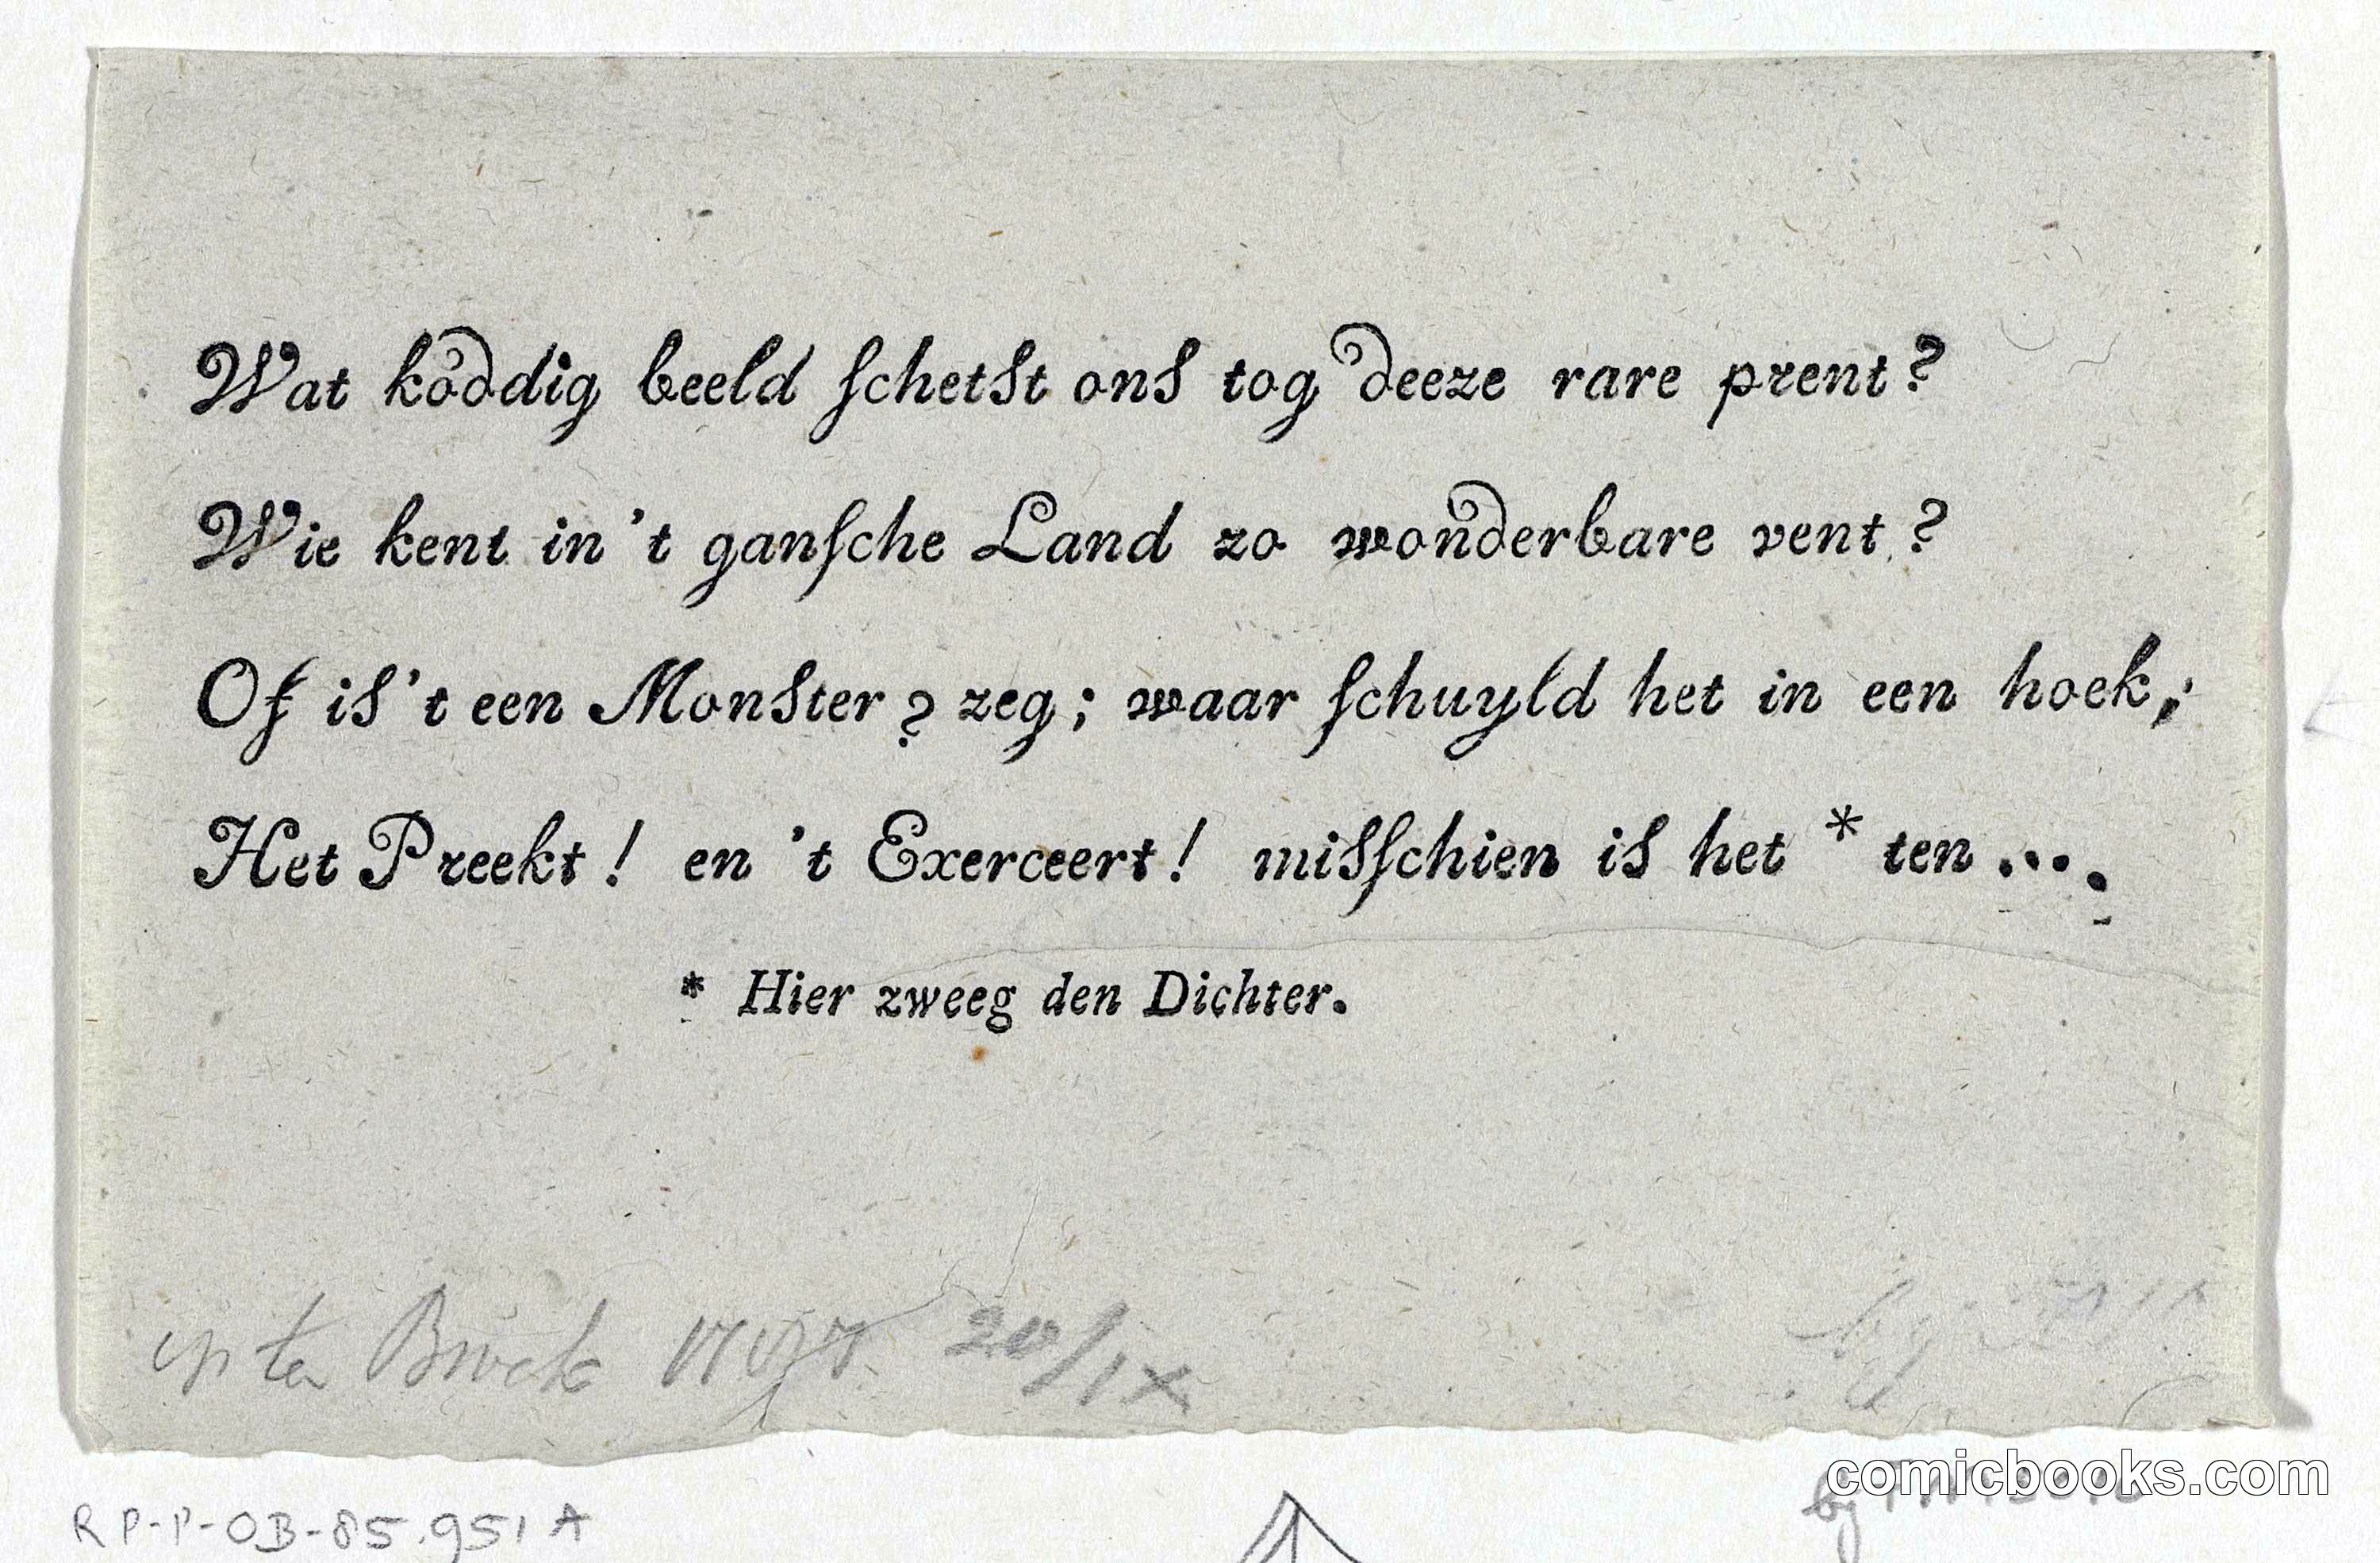 Wat koddig beeld ſchetst ons tog deeze rare prent?
Wie kent in 't ganſche Land zo wonderbare vent?
Of is 't een Monster? zeg; waar ſchuyld het in een hoek;
Het Preekt! en 't Exerceert! misſchien is het * ten ....
* Hier zweeg den Dichter.
ten Broek 20/1x
by
RP-P-OB-85.951 A
by
comicbooks.com